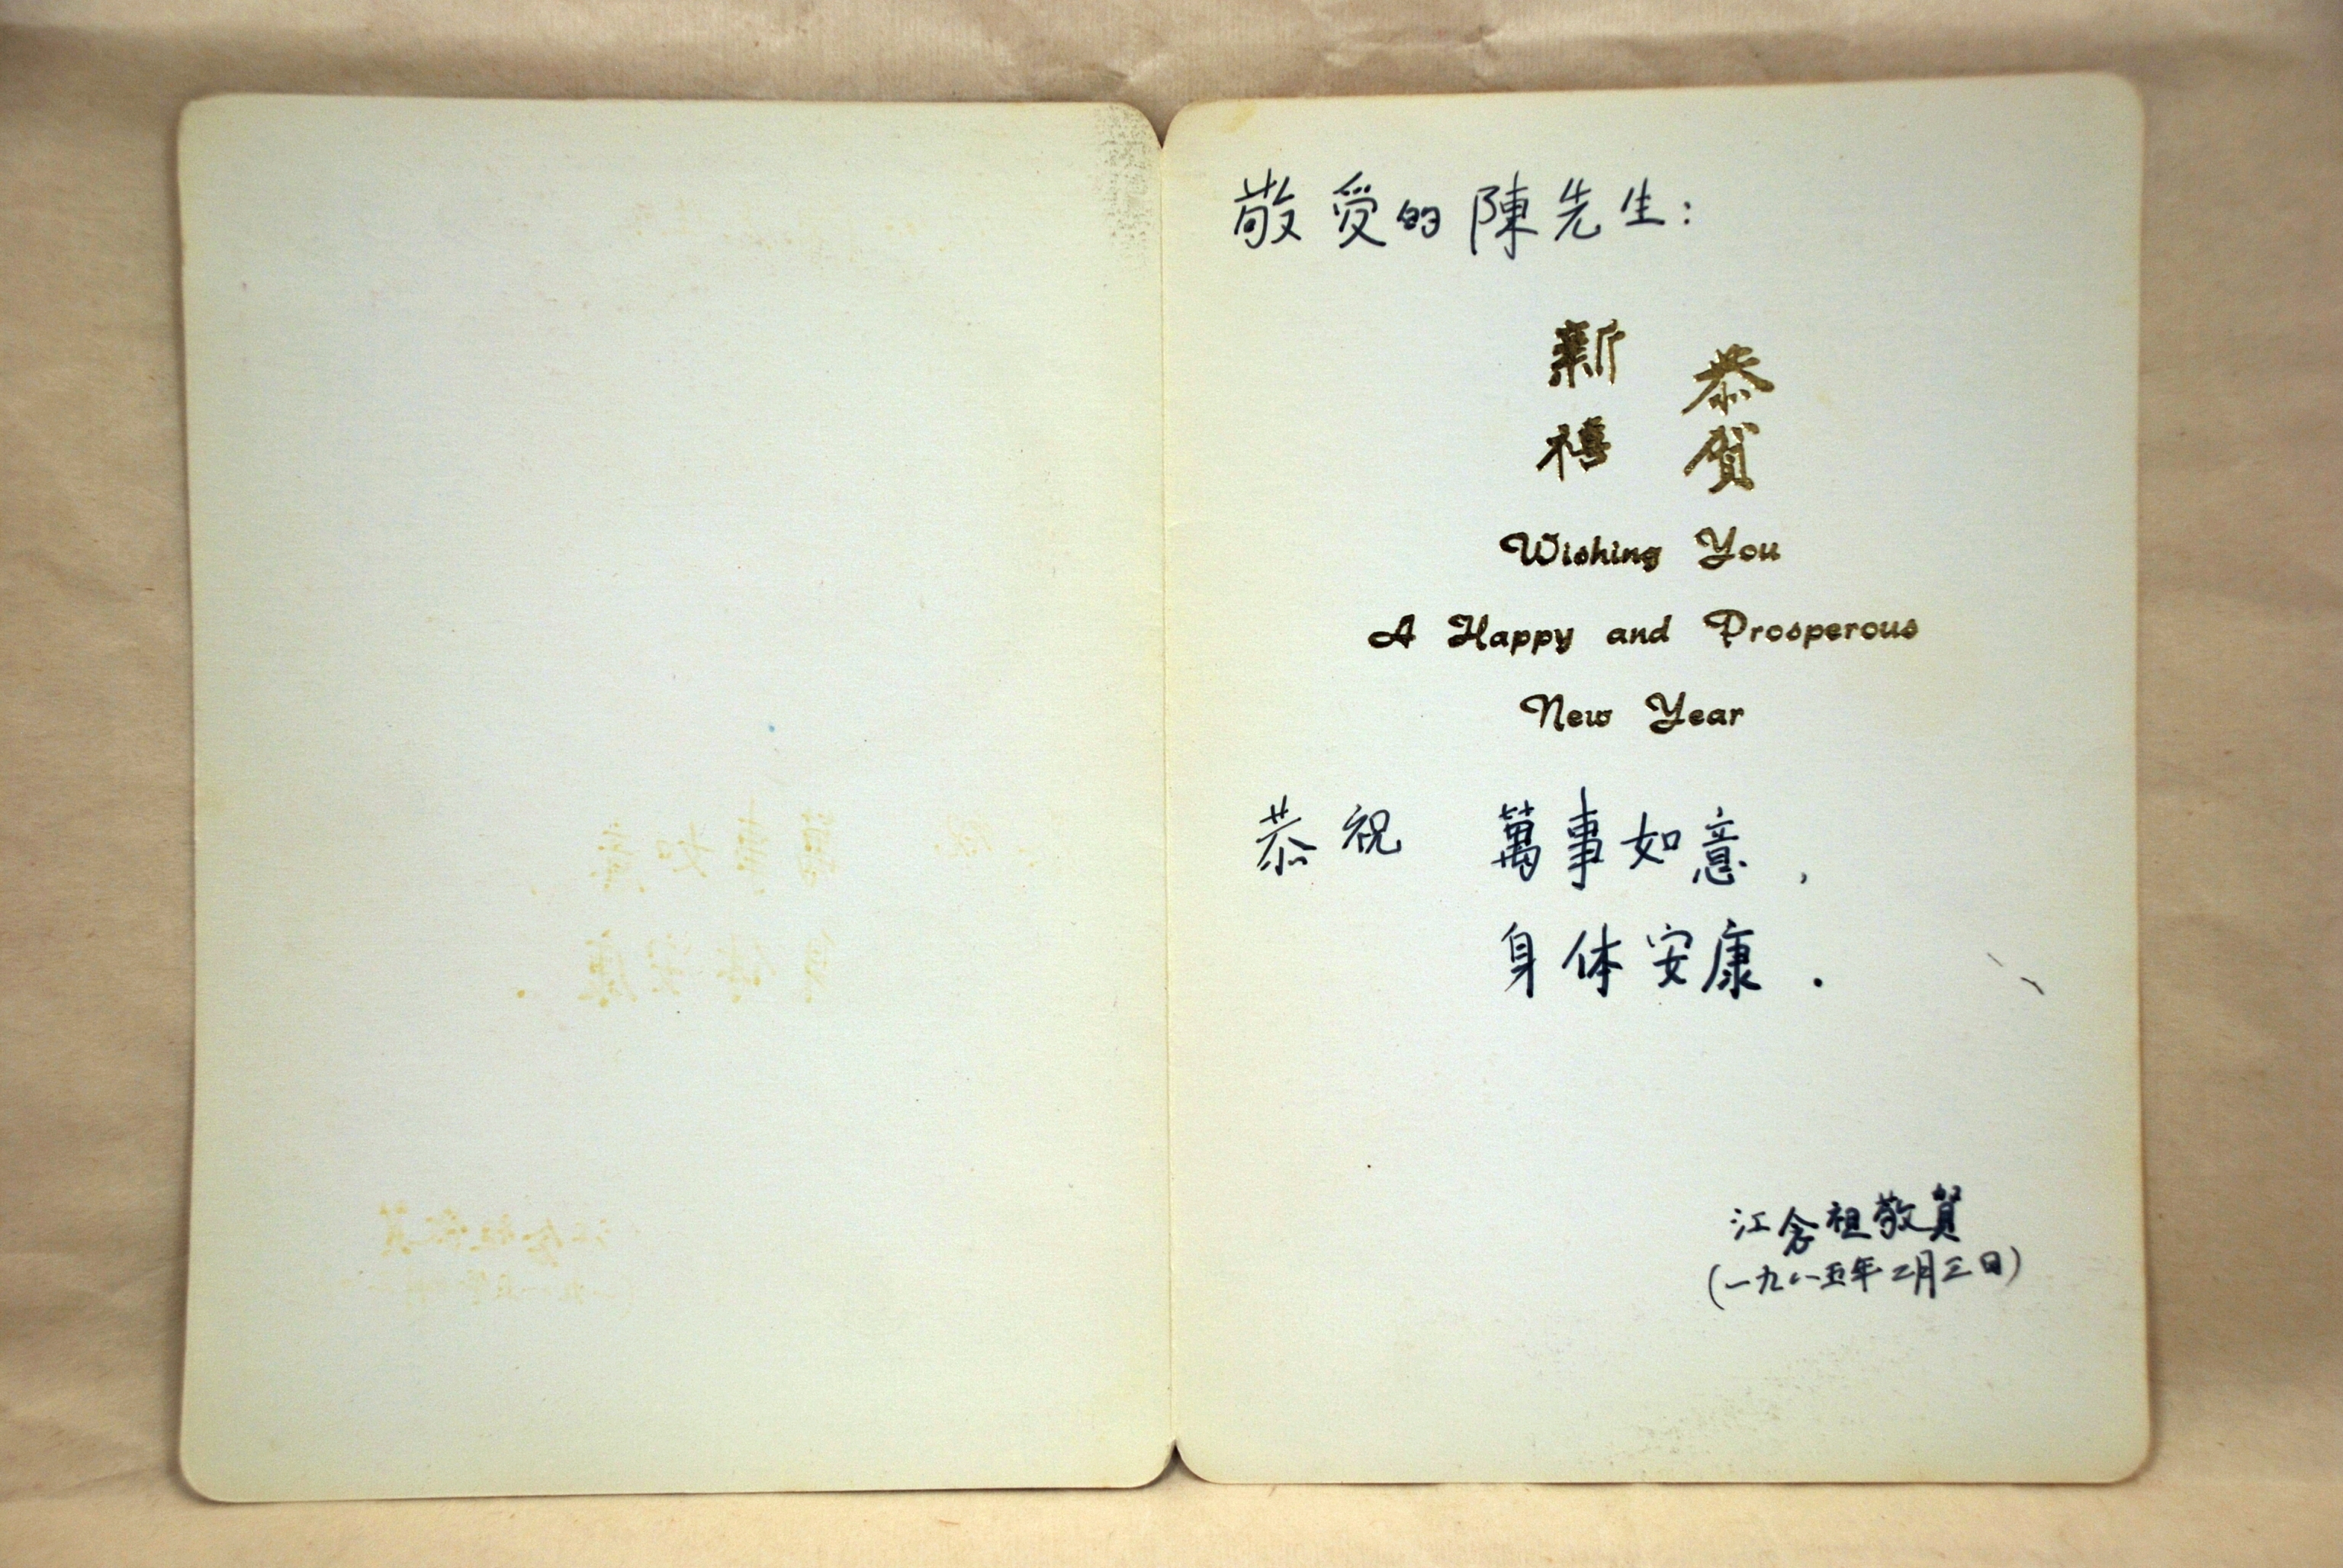 敬爱的陳先生：
恭賀
新禧
Wishing You
A Happy and Prosperous
New Year
恭祝 萬事如意，
身体安康．
江念祖敬賀
(一九八五年二月三日)